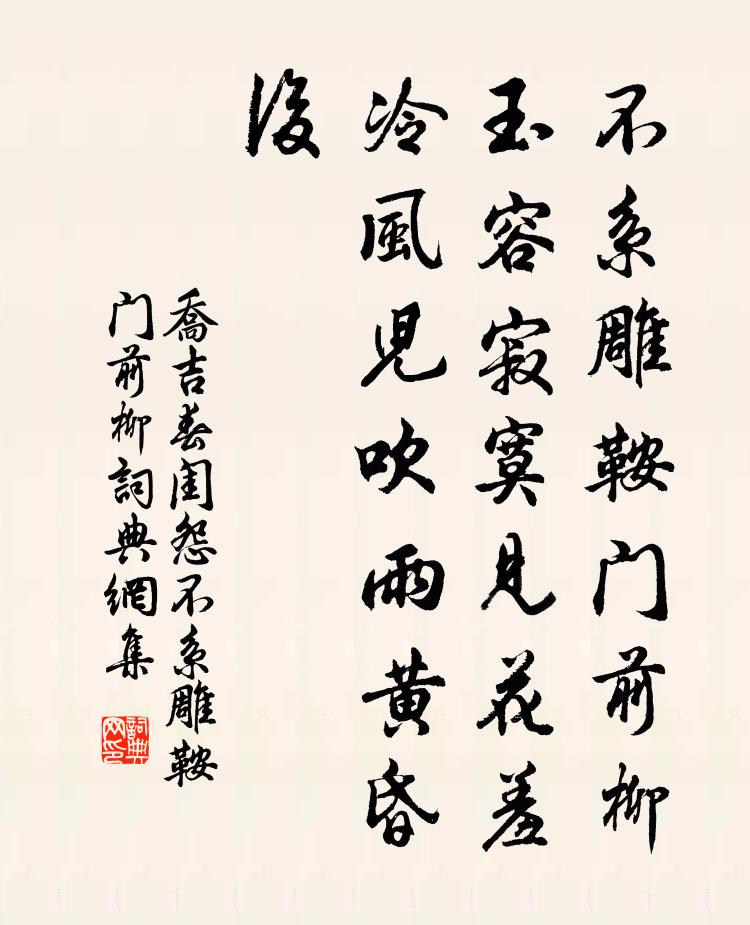 不系雕鞍门前柳
玉容寂寞見花羞
冷風児吹雨黄昏
後
喬吉春闺怨不系雕鞍
门前柳詞典網集
詞典
网印